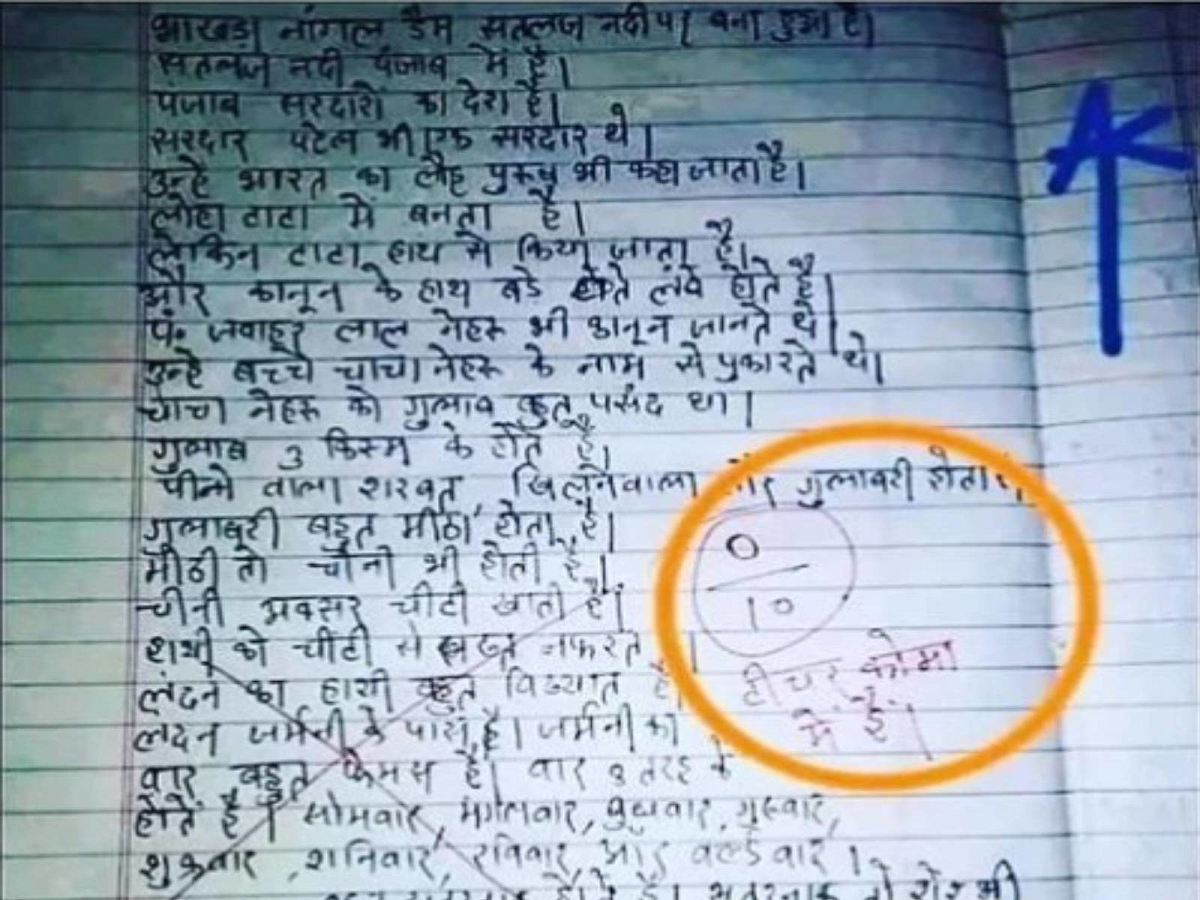 भाखड़ा नांगल डैम सतलज नदी पर बना हुआ है।
सतलज नदी पंजाब में है।
पंजाब सरदारों का देश है।
सरदार पटेल भी एक सरदार थे।
उन्हे भारत का लौह पुरुष भी कहा जाता है।
लोहा टाटा में बनता है।
लेकिन टाटा हाथ से किया जाता है।
और कानून के हाथ बडे होते लंबे होते है।
पं. जवाहर लाल नेहरू भी कानून जानते थे।
उन्हे बच्चे चाचा नेहरू के नाम से पुकारते थे।
चाचा नेहरू को गुलाब बहुत पसंद था।
गुलाब 3 किस्म के होते है।
पीने वाला शरबत, खिलने वाला और गुलाबरी होता
गुलाबरी बहुत मीठा होता है।
मीठी तो चीनी भी होती है।
चीनी अक्सर चींटी खाती है।
हाथी को चींटी से सख्त नफरत
लंदन का हाथी बहुत विख्यात है
लंदन जर्मनी के पास है। जर्मनी का
वार बहुत फेमस है। वार 8 तरह के
होते है। सोमवार, मंगलवार, बुधवार, गुरुवार,
शुक्रवार, शनिवार, रविवार, और वर्ल्डवार।
होते है। खतरनाक तो शेर भी
0
10
टीचर कोमा
में है।